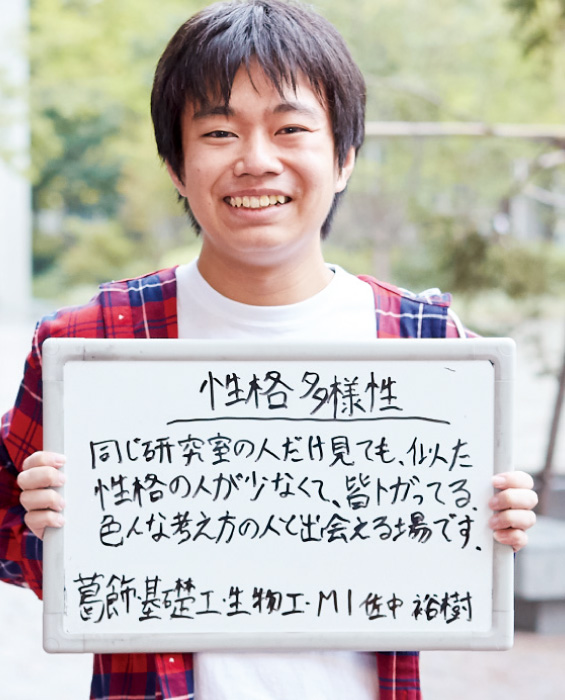 性格多様性
同じ研究室の人だけ見ても、似た
性格の人が少なくて、皆トガってる。
色んな考え方の人と出会える場です。
葛飾・基礎工・生物工・M1 佐中 裕樹